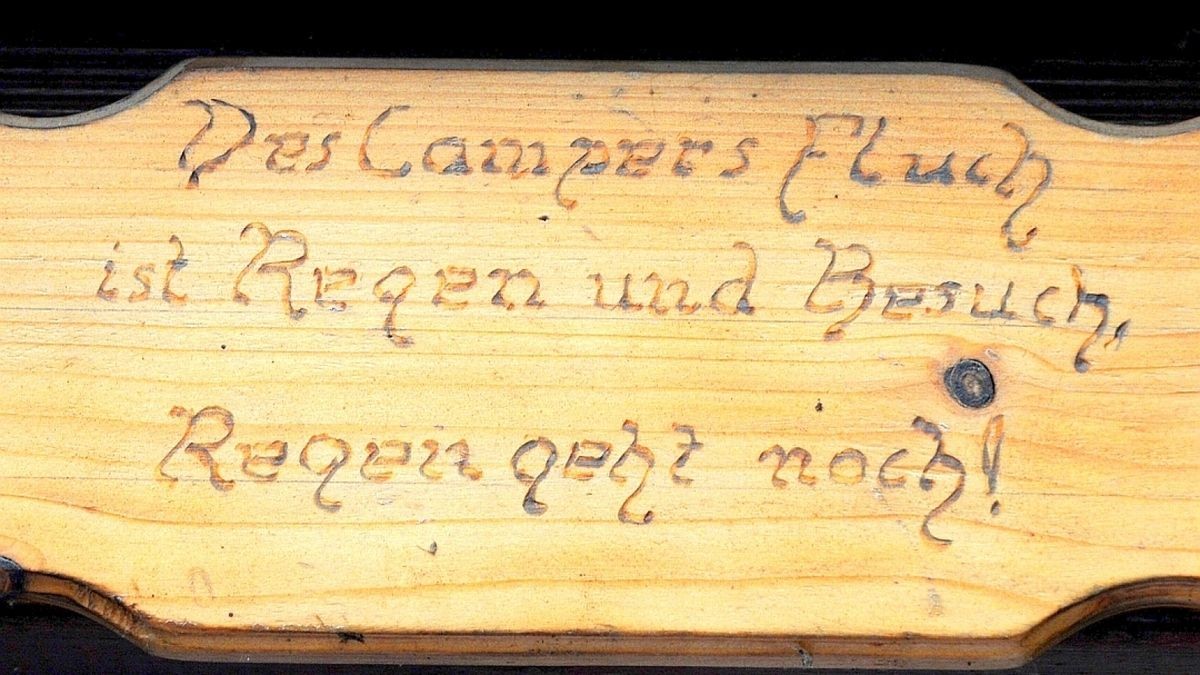 Des Campers Fluch
ist Regen und Besuch,
Regen geht noch!